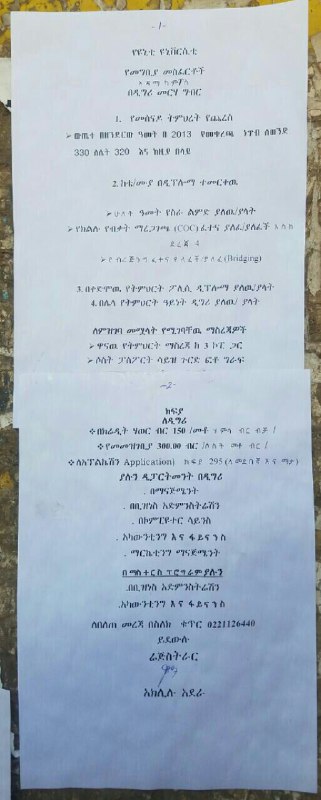 -1-
የዩኒቲ ዩኒቨርሲቲ
የመግቢያ መስፈርቶች
አዳማ ካምፓስ
በዲግሪ መርሃ ግብር
1. የመሰናዶ ትምህረት የጨረሰ
➢ ውጤተ በዘንድሮው ዓመት በ 2013 የመቀረጫ ነጥብ ለወንድ
330 ለሴት 320 እና ከዚያ በላይ
2. ከቴ/ሙያ በዲፕሎማ ተመርቀዉ
➢ ሁለት ዓመት የስራ ልምድ ያለዉ/ያላት
➢ የክልሉ የብቃት ማረጋገጫ (COC) ፈተና ያለፈ/ያለፈች እስከ
ደረጃ 4
➢ የብሪጅንግ ፈተና ያለፈች/ያለፈ (Bridging)
3. በቀድሞዉ የትምህርት ፖሊሲ ዲፕሎማ ያለዉ/ያላት
4. በሌላ የትምህርት ዓይነት ዲግሪ ያለዉ/ ያላት
ለምዝገባ መሟላት የሚገባቸዉ ማስረጃዎች
➢ ዋናዉ የትምህርት ማስረጃ ከ 3 ኮፒ ጋር
➢ ሶስት ፓስፖርት ሳይዝ ጉርድ ፎቶ ግራፍ
-2-
ክፍያ
ለዲግሪ
❖ በክሬዲት ሃወር ብር 150 /መቶ ሃምሳ ብር ብቻ /
❖ የመመዝገቢያ 300.00 ብር /ሶስት መቶ ብር /
❖ ለአፕልኬሽን Application) ክፍያ 295 (ለመደበኛ እና ማታ)
ያሉን ዲፓርትመንት በዲግሪ
. በማናጅመንት
. በቢዝነስ አድምንስትሬሽን
. በኮምፒዩተር ሳይንስ
. አካውንቲንግ እና ፋይናንስ
. ማርኬቲንግ ማናጅመንት
በማስተርስ ፕሮግራም ያሉን
. በቢዝነስ አድምንስትሬሽን
. አካውንቲንግ እና ፋይናንስ
ለበለጠ መረጃ በስልክ ቁጥር 0221126440
ይደውሉ
ሬጅስትራር
አክሊሉ አደራ